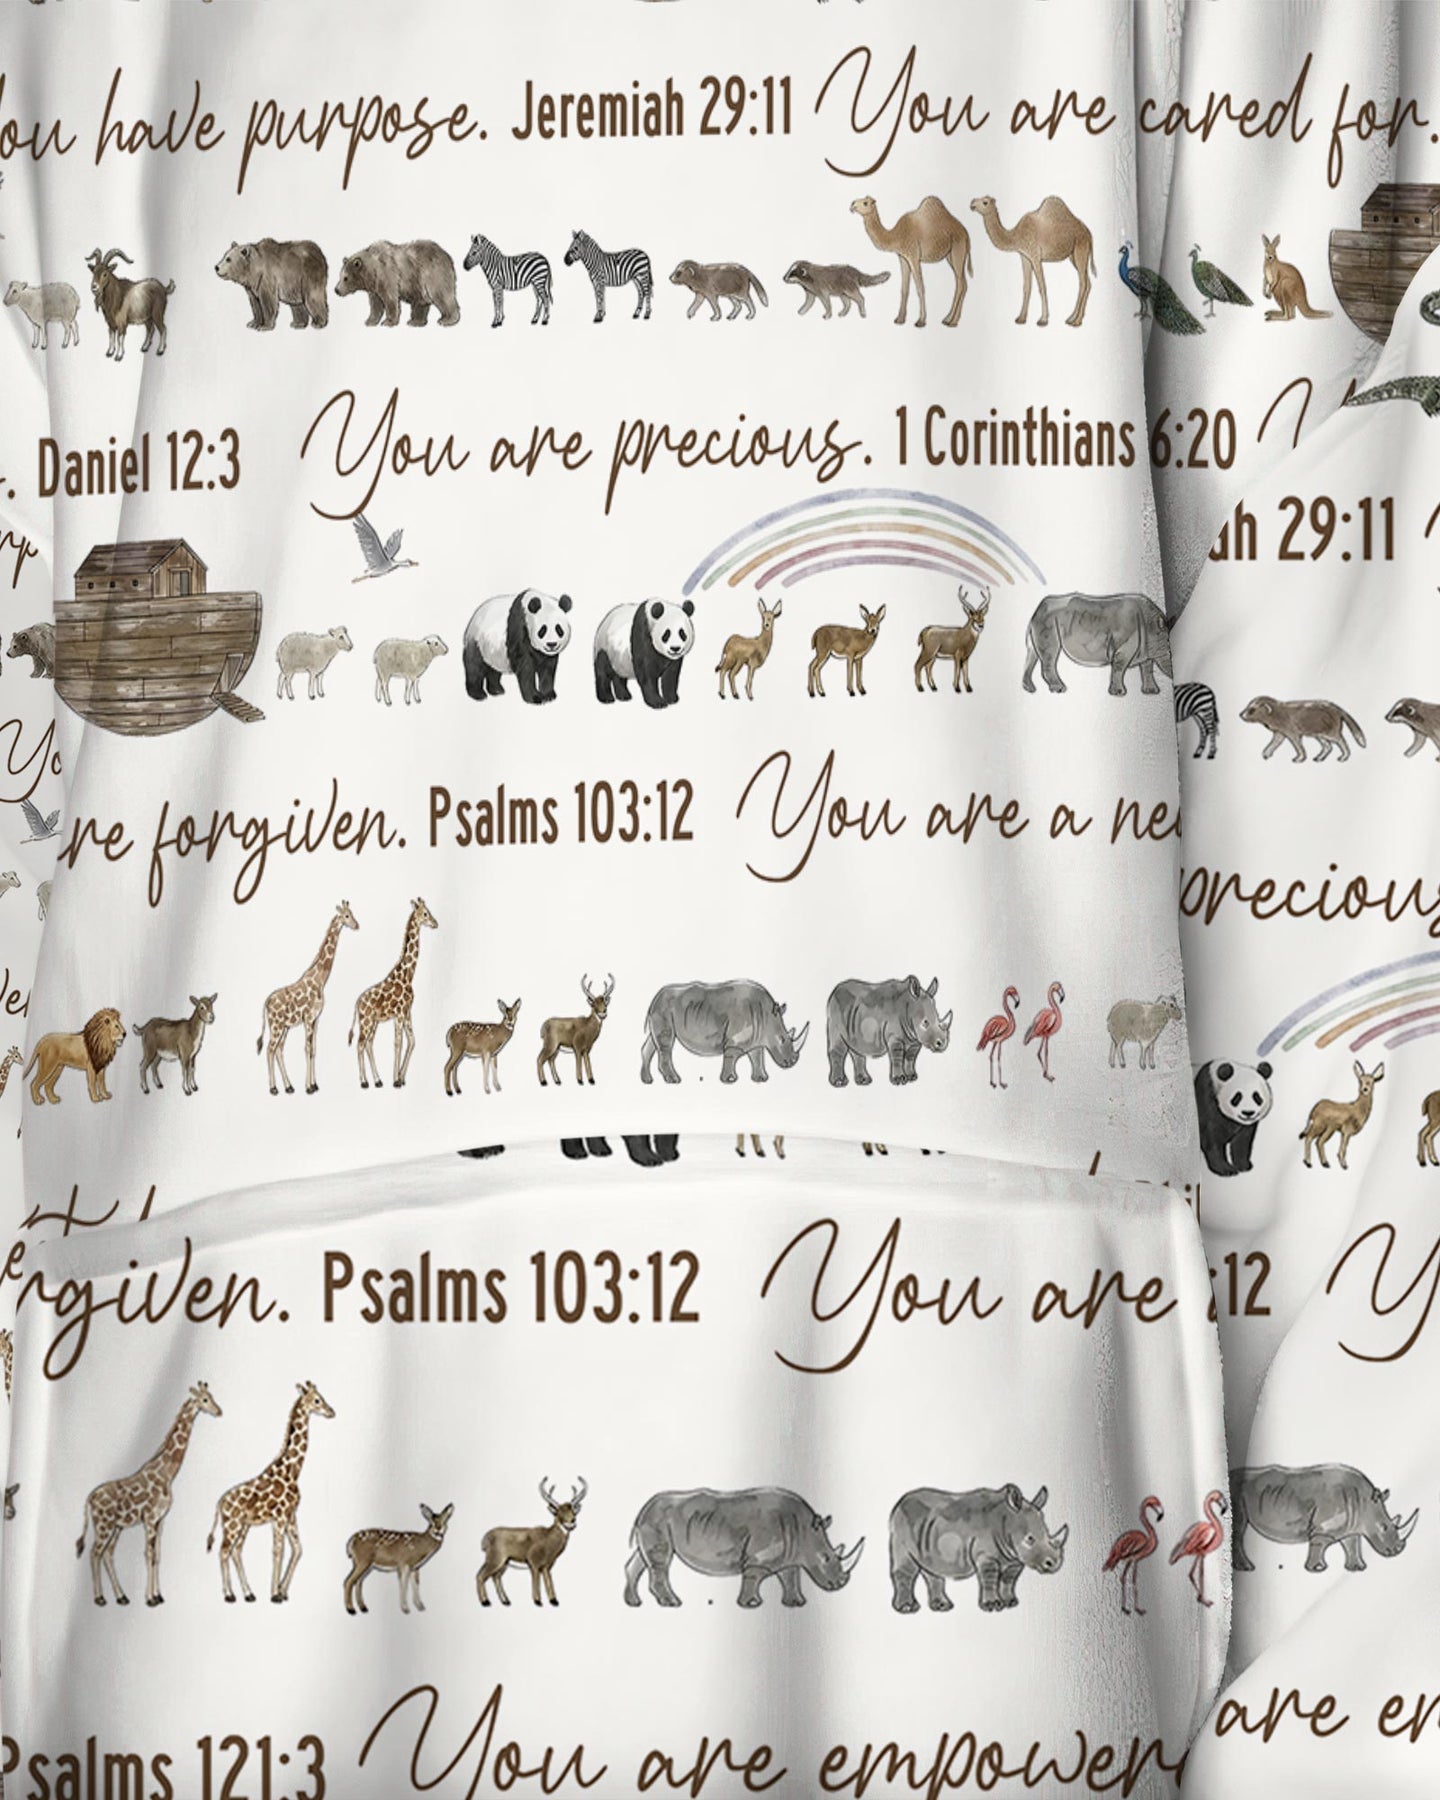 ou have purpose. Jeremiah 29:11 You are cared for.
. Daniel 12:3 You are precious. 1 Corinthians 6:20
ah 29:11
re forgiven. Psalms 103:12 You are a ne
precious
rgiven. Psalms 103:12 You are :12
Psalms 121:3 You are empower
are e